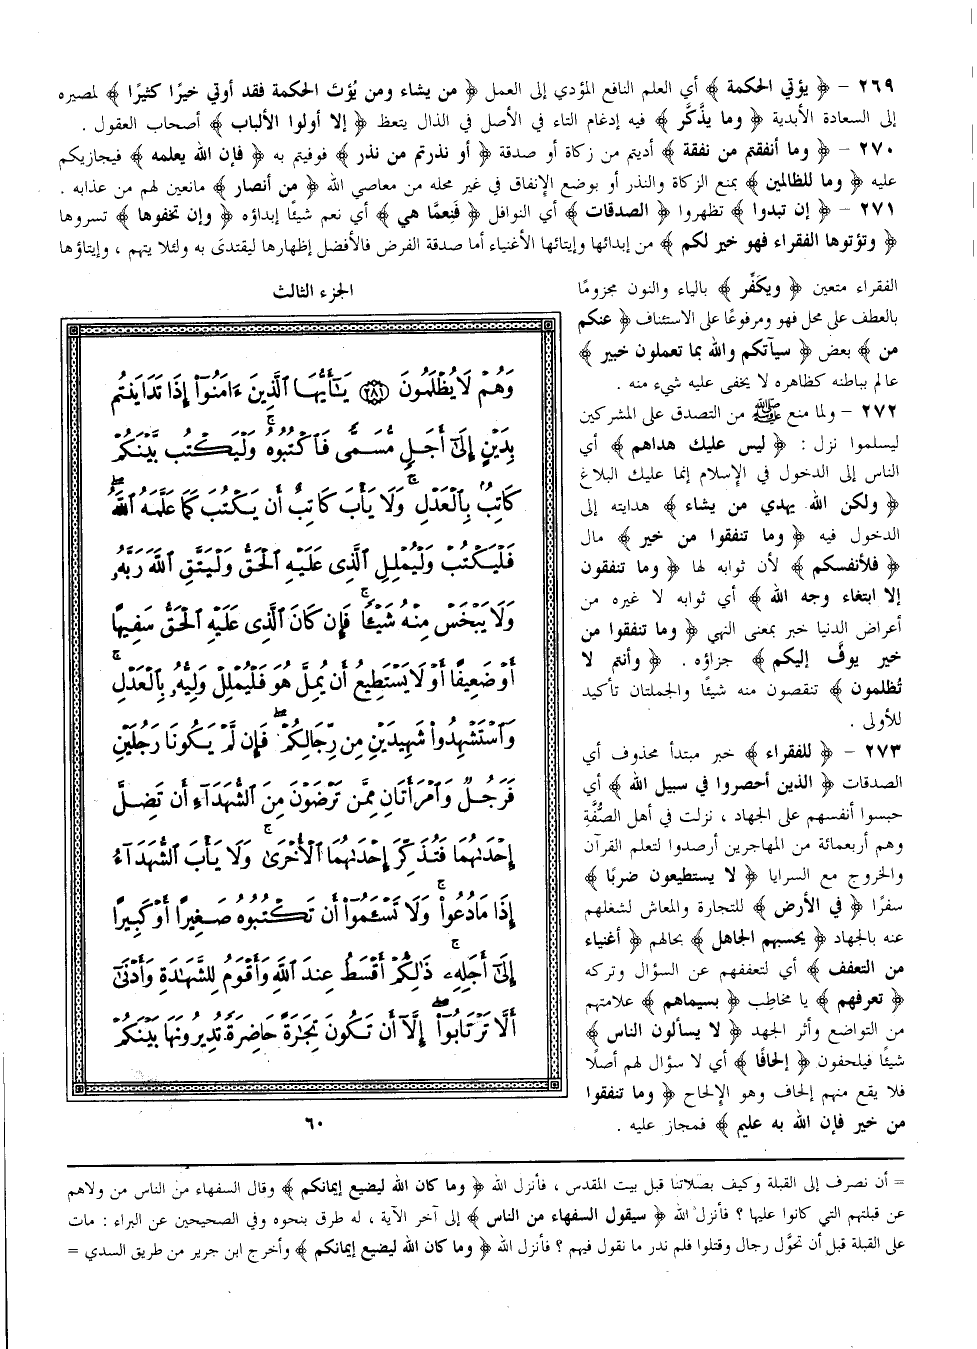 ٢٦٩ - ﴿ يؤتي الحكمة ﴾ أي العلم النافع المؤدي إلى العمل ﴿ من يشاء ومن يُؤْتَ الحكمة فقد أوتي خيرًا كثيرًا ﴾ لمصيره
إلى السعادة الأبدية ﴿ وما يذَّكَّر ﴾ فيه إدغام التاء في الأصل في الذال يتعظ ﴿ إلا أولوا الألباب ﴾ أصحاب العقول .
٢٧٠ - ﴿ وما أنفقتم من نفقة ﴾ أديتم من زكاة أو صدقة ﴿ أو نذرتم من نذر ﴾ فوفيتم به ﴿ فإن الله يعلمه ﴾ فيجازيكم
عليه ﴿ وما للظالمين ﴾ بمنع الزكاة والنذر أو بوضع الإنفاق في غير محله من معاصي الله ﴿ من أنصار ﴾ مانعين لهم من عذابه .
٢٧١ - ﴿ إن تبدوا ﴾ تظهروا ﴿ الصدقات ﴾ أي النوافل ﴿ فَنِعمَّا هي ﴾ أي نعم شيئًا إبداؤه ﴿ وإن تخفوها ﴾ تسروها
﴿ وتؤتوها الفقراء فهو خير لكم ﴾ من إبدائها وإيتائها الأغنياء أما صدقة الفرض فالأفضل إظهارها ليقتدى به ولئلا يتهم ، وإيتاؤها
الفقراء متعين ﴿ ويكفِّر ﴾ بالياء والنون مجزومًا
بالعطف على محل فهو ومرفوعًا على الاستئناف ﴿ عنكم
من ﴾ بعض ﴿ سيآتكم والله بما تعملون خبير ﴾
عالم بباطنه كظاهره لا يخفى عليه شيء منه .
٢٧٢ - ولما منع ﷺ من التصدق على المشركين
ليسلموا نزل : ﴿ ليس عليك هداهم ﴾ أي
الناس إلى الدخول في الإسلام إنما عليك البلاغ
﴿ ولكن الله يهدي من يشاء ﴾ هدايته إلى
الدخول فيه ﴿ وما تنفقوا من خير ﴾ مال
﴿ فلأنفسكم ﴾ لأن ثوابه لها ﴿ وما تنفقون
إلا ابتغاء وجه الله ﴾ أي ثوابه لا غيره من
أعراض الدنيا خبر بمعنى النهي ﴿ وما تنفقوا من
خير يوفَّ إليكم ﴾ جزاؤه . ﴿ وأنتم لا
تُظلمون ﴾ تنقصون منه شيئًا والجملتان تأكيد
للأولى .
٢٧٣ - ﴿ للفقراء ﴾ خبر مبتدأ محذوف أي
الصدقات ﴿ الذين أحصروا في سبيل الله ﴾ أي
حبسوا أنفسهم على الجهاد ، نزلت في أهل الصُّفَّةِ
وهم أربعمائة من المهاجرين أرصدوا لتعلم القرآن
والخروج مع السرايا ﴿ لا يستطيعون ضربًا ﴾
سفرًا ﴿ في الأرض ﴾ للتجارة والمعاش لشغلهم
عنه بالجهاد ﴿ يحسبهم الجاهل ﴾ بحالهم ﴿ أغنياء
من التعفف ﴾ أي لتعففهم عن السؤال وتركه
﴿ تعرفهم ﴾ يا مخاطب ﴿ بسيماهم ﴾ علامتهم
من التواضع وأثر الجهد ﴿ لا يسألون الناس ﴾
شيئًا فيلحفون ﴿ إلحافًا ﴾ أي لا سؤال لهم أصلًا
فلا يقع منهم إلحاف وهو الإلحاح ﴿ وما تنفقوا
من خير فإن الله به عليم ﴾ فمجاز عليه .
الجزء الثالث
وَهُمْ لَا يُظْلَمُونَ ٢٨١ يَٰٓأَيُّهَا ٱلَّذِينَ ءَامَنُوٓا۟ إِذَا تَدَايَنتُم
بِدَيْنٍ إِلَىٰٓ أَجَلٍ مُّسَمًّى فَٱكْتُبُوهُ ۚ وَلْيَكْتُب بَّيْنَكُمْ
كَاتِبٌۢ بِٱلْعَدْلِ ۚ وَلَا يَأْبَ كَاتِبٌ أَن يَكْتُبَ كَمَا عَلَّمَهُ ٱللَّهُ ۚ
فَلْيَكْتُبْ وَلْيُمْلِلِ ٱلَّذِى عَلَيْهِ ٱلْحَقُّ وَلْيَتَّقِ ٱللَّهَ رَبَّهُۥ
وَلَا يَبْخَسْ مِنْهُ شَيْـًٔا ۚ فَإِن كَانَ ٱلَّذِى عَلَيْهِ ٱلْحَقُّ سَفِيهًا
أَوْ ضَعِيفًا أَوْ لَا يَسْتَطِيعُ أَن يُمِلَّ هُوَ فَلْيُمْلِلْ وَلِيُّهُۥ بِٱلْعَدْلِ ۚ
وَٱسْتَشْهِدُوا۟ شَهِيدَيْنِ مِن رِّجَالِكُمْ ۖ فَإِن لَّمْ يَكُونَا رَجُلَيْنِ
فَرَجُلٌ وَٱمْرَأَتَانِ مِمَّن تَرْضَوْنَ مِنَ ٱلشُّهَدَآءِ أَن تَضِلَّ
إِحْدَىٰهُمَا فَتُذَكِّرَ إِحْدَىٰهُمَا ٱلْأُخْرَىٰ ۚ وَلَا يَأْبَ ٱلشُّهَدَآءُ
إِذَا مَا دُعُوا۟ ۚ وَلَا تَسْـَٔمُوٓا۟ أَن تَكْتُبُوهُ صَغِيرًا أَوْ كَبِيرًا
إِلَىٰٓ أَجَلِهِۦ ۚ ذَٰلِكُمْ أَقْسَطُ عِندَ ٱللَّهِ وَأَقْوَمُ لِلشَّهَٰدَةِ وَأَدْنَىٰٓ
أَلَّا تَرْتَابُوٓا۟ ۖ إِلَّآ أَن تَكُونَ تِجَٰرَةً حَاضِرَةً تُدِيرُونَهَا بَيْنَكُمْ
٦٠
= أن نصرف إلى القبلة وكيف بصلاتنا قبل بيت المقدس ، فأنزل الله ﴿ وما كان الله ليضيع إيمانكم ﴾ وقال السفهاء من الناس من ولاهم
عن قبلتهم التي كانوا عليها ؟ فأنزل الله ﴿ سيقول السفهاء من الناس ﴾ إلى آخر الآية ، له طرق بنحوه وفي الصحيحين عن البراء : مات
على القبلة قبل أن تحوَّل رجال وقتلوا فلم ندر ما نقول فيهم ؟ فأنزل الله ﴿ وما كان الله ليضيع إيمانكم ﴾ وأخرج ابن جرير من طريق السدي =